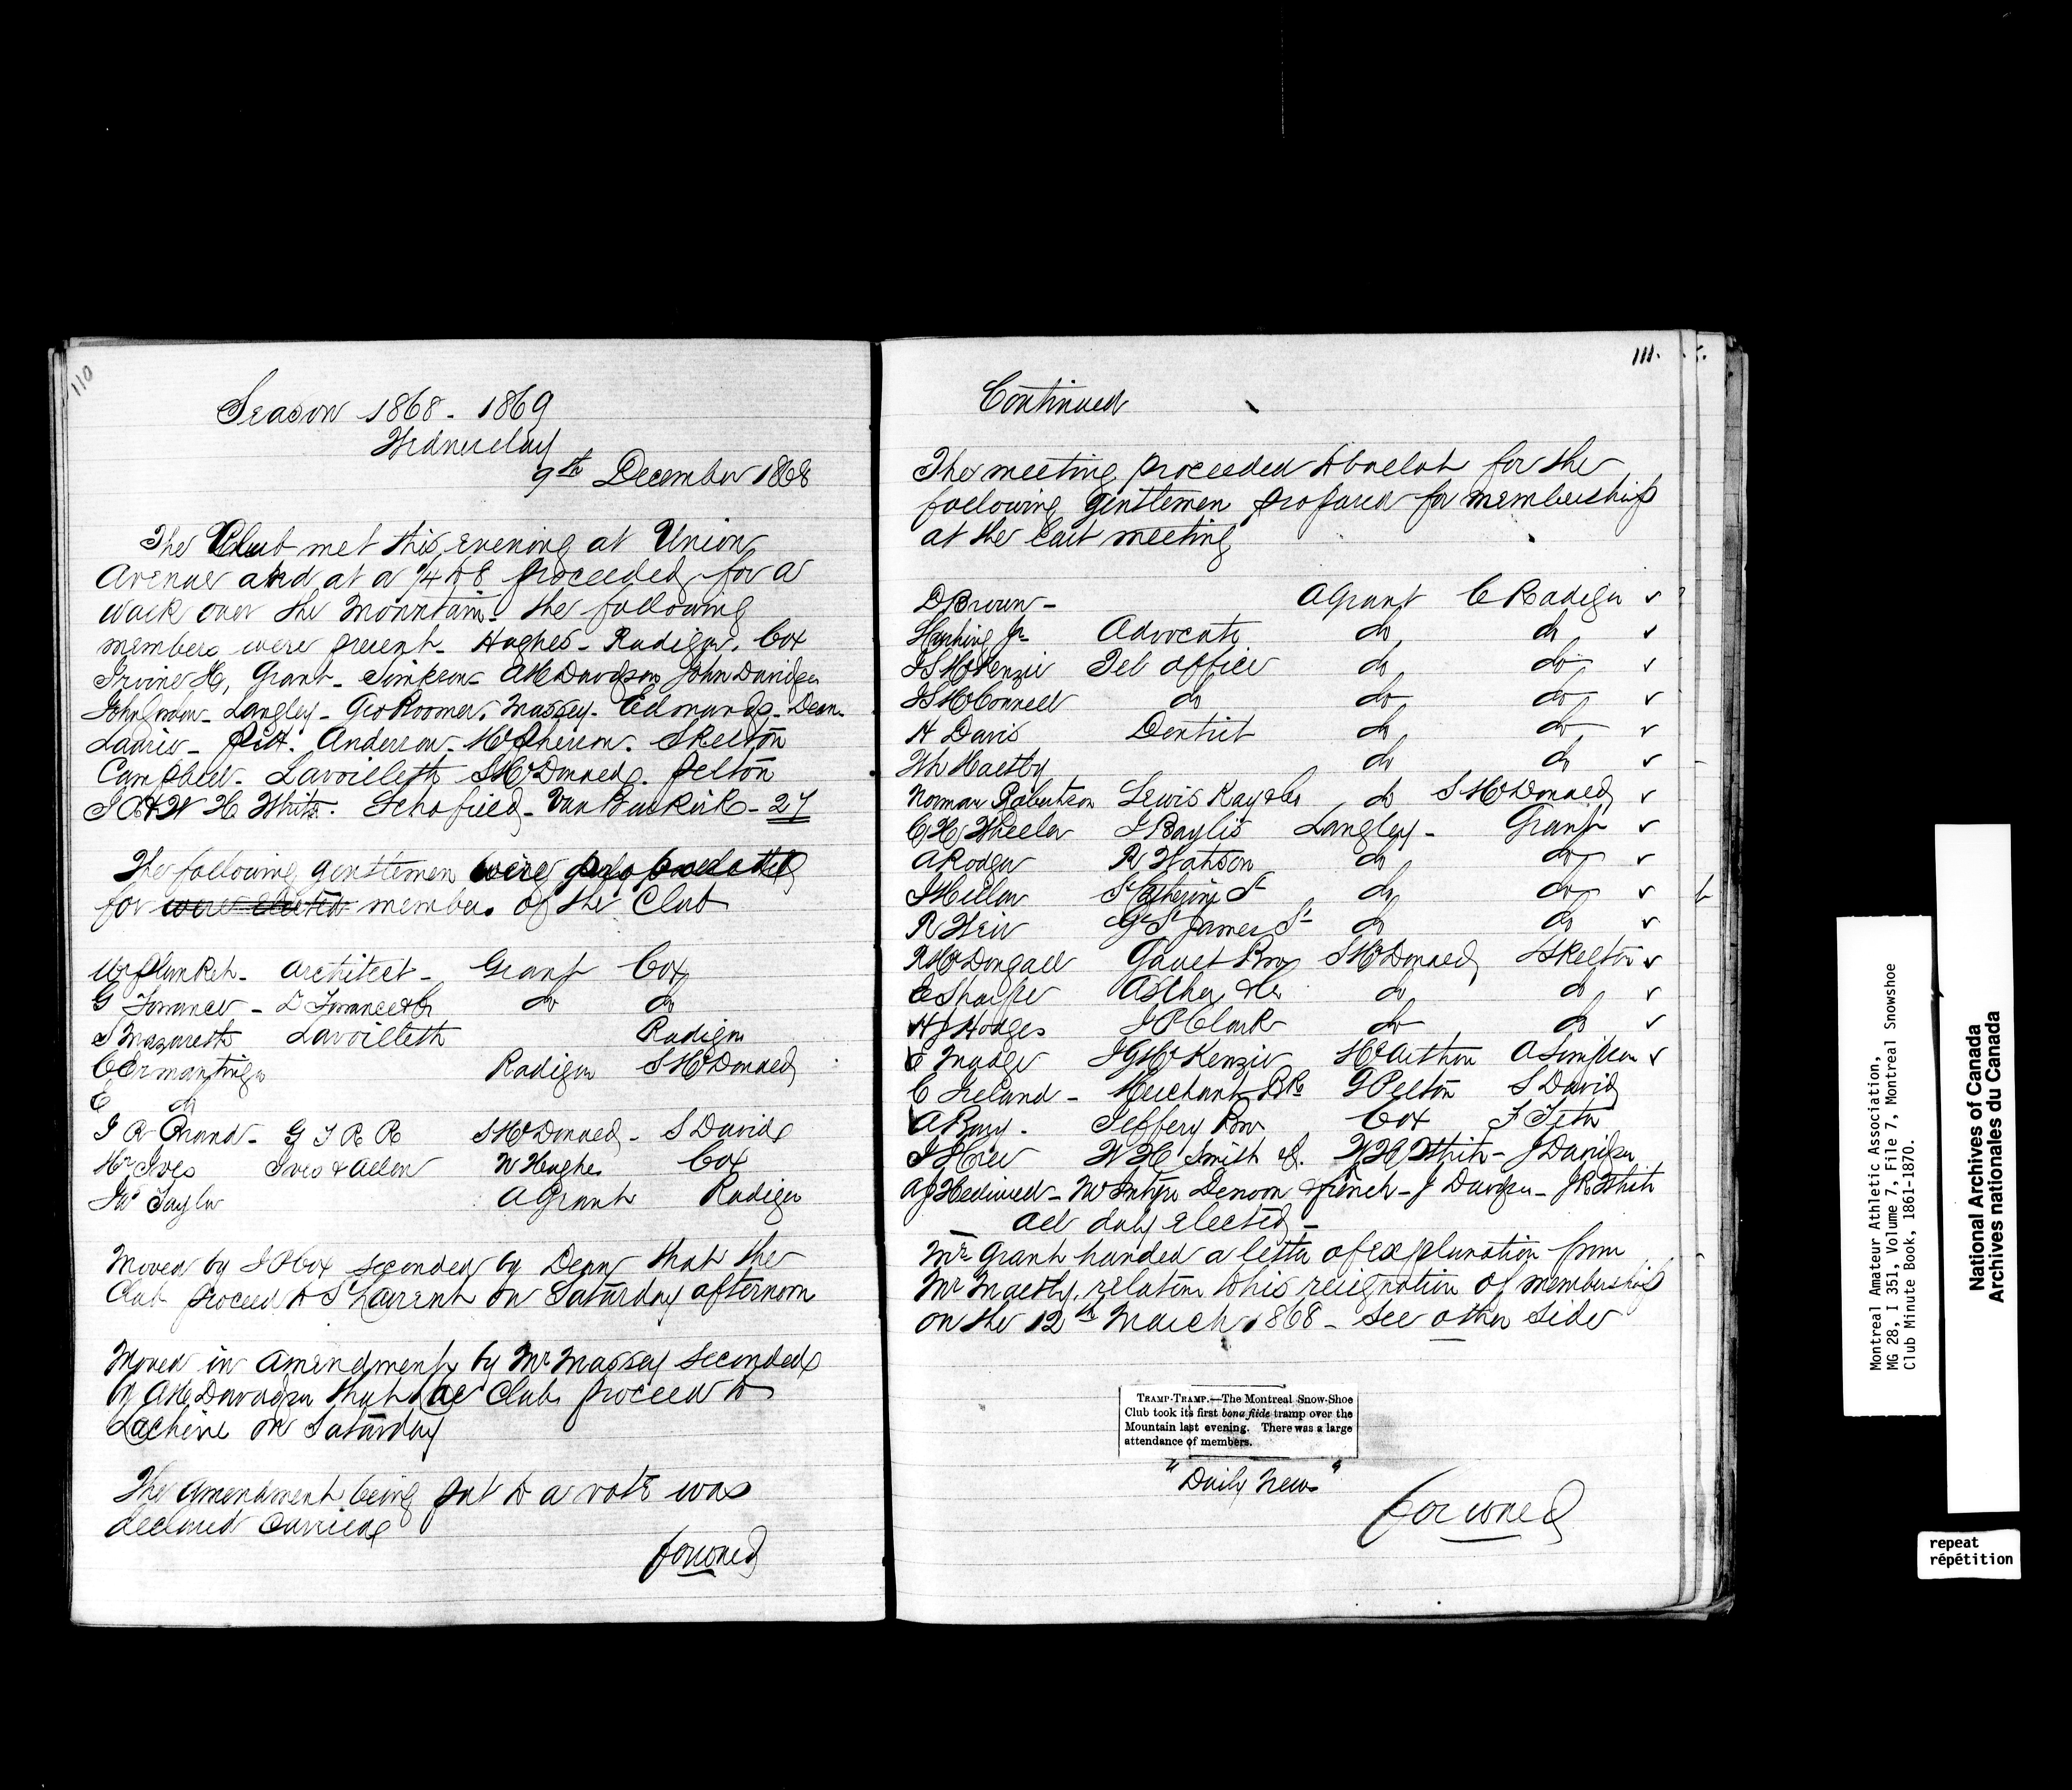 110
Season 1868 - 1869
Wednesday
9th December 1868
The Club met this evening at Union
Avenue and at a 1/4 to 8 proceeded for a
walk over the Mountain - the following
members were present - Hughes - Radiger. Cox
Irvine H, Grant - Simpson - AM Davidson John Davidson
Langley - Geo Roomer. Massey - Edmunds - Dean
Laurie - Pitt. Anderson - McPherson - Skelton
Campbell - Lavoilleth S McDonnell. Pelton
H White. Schofield - Van Buskirk - 27
The following gentlemen were proposed
for were elected members of the Club
Wm Plunket - Architect - Grant Cox
G Torrance - D Torrance & Co do do
Lavoilleth Radiger
C Ermantinger Radiger S McDonnell
C do
J R Brand - G T R R S McDonnell - S David
Mr Ives Ives & Allen W Hughes Cox
Jas Taylor A Grant Radiger
Moved by Cox seconded by Dean that the
Club proceed to St Laurent on Saturday afternoon
Moved in Amendment by Mr Massey seconded
by AM Davidson that the Club proceed to
Lachine on Saturday
The Amendment being put to a vote was
declared carried
forward
111.
Continued
The meeting proceeded to ballot for the
following gentlemen proposed for membership
at the last meeting
D Brown - A Grant C Radiger ✓
Jr Advocate do do ✓
J S McKenzie Tel office do do ✓
J S McConnell do do do ✓
H Davis Dentist do do ✓
Maltby do do ✓
Norman Robertson Lewis Kay & Co do S McDonnell ✓
C H Wheeler J Baylis Langley - Grant ✓
A Rodger R Watson do do ✓
J Millar St Catherine St do do ✓
R Weir Gt St James St do do ✓
R McDougall Gault Bros S McDonnell Skelton ✓
C Sharpe do do ✓
H J Hodges J P Clark do do ✓
E Mudge J G McKenzie McArthur A Simpson ✓
C Ireland - Merchants Bk G Pelton S David
Jeffery Bro Cox
W H Smith W H White - J Davidson
McIntyre Denoon & French - J Davidson - J R White
All duly elected -
Mr Grant handed a letter of explanation from
Mr Maltby, relation to his resignation of membership
on the 12th March 1868 - See other side
TRAMP-TRAMP.—The Montreal Snow-Shoe
Club took its first bona fiide tramp over the
Mountain last evening. There was a large
attendance of members.
"Daily News"
forward
Montreal Amateur Athletic Association,
MG 28, I 351, Volume 7, File 7, Montreal Snowshoe
Club Minute Book, 1861-1870.
National Archives of Canada
Archives nationales du Canada
repeat
répétition